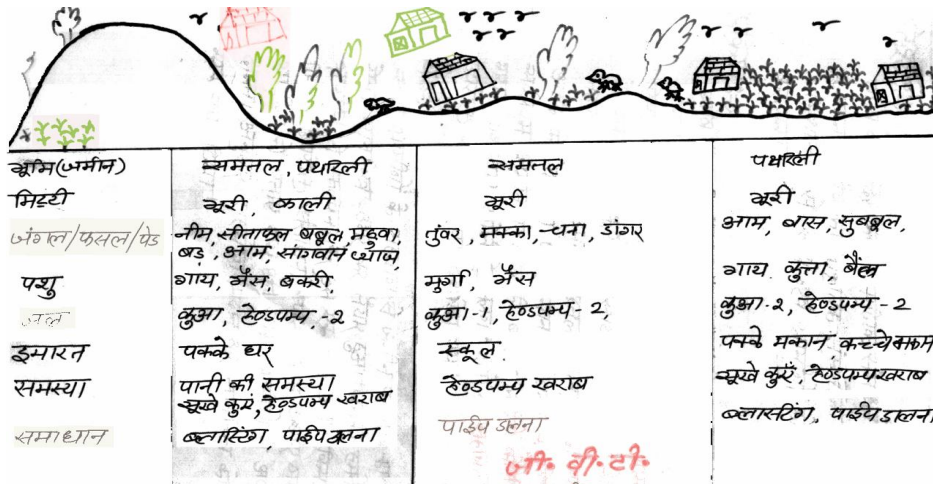 भूमि(जमीन)
समतल, पथरिली
समतल
पथरिली
मिट्टी
भूरी, काली
भूरी
भूरी
जंगल/फसल/पेड
नीम, सीताफल, बबूल, महुवा,
बड़, आम, सागवान, प्याज,
तुंवर, मक्का, चना, डांगर
आम, बास, सुबबूल,
पशु
गाय, भैंस, बकरी,
मुर्गा, भैंस
गाय, कुत्ता, बैल
जल
कुआ, हेण्डपम्प, -2
कुआ-1, हेण्डपम्प-2,
कुआ-2, हेण्डपम्प-2
इमारत
पक्के घर
स्कूल
पक्के मकान, कच्चे मकान
समस्या
पानी की समस्या
सूखे कुएं, हेण्डपम्प खराब
हेण्डपम्प खराब
सूखे कुएं, हेण्डपम्प खराब
समाधान
ब्लास्टिंग, पाईप डालना
पाईप डालना
ब्लास्टिंग, पाईप डालना
जी. वी. टी.